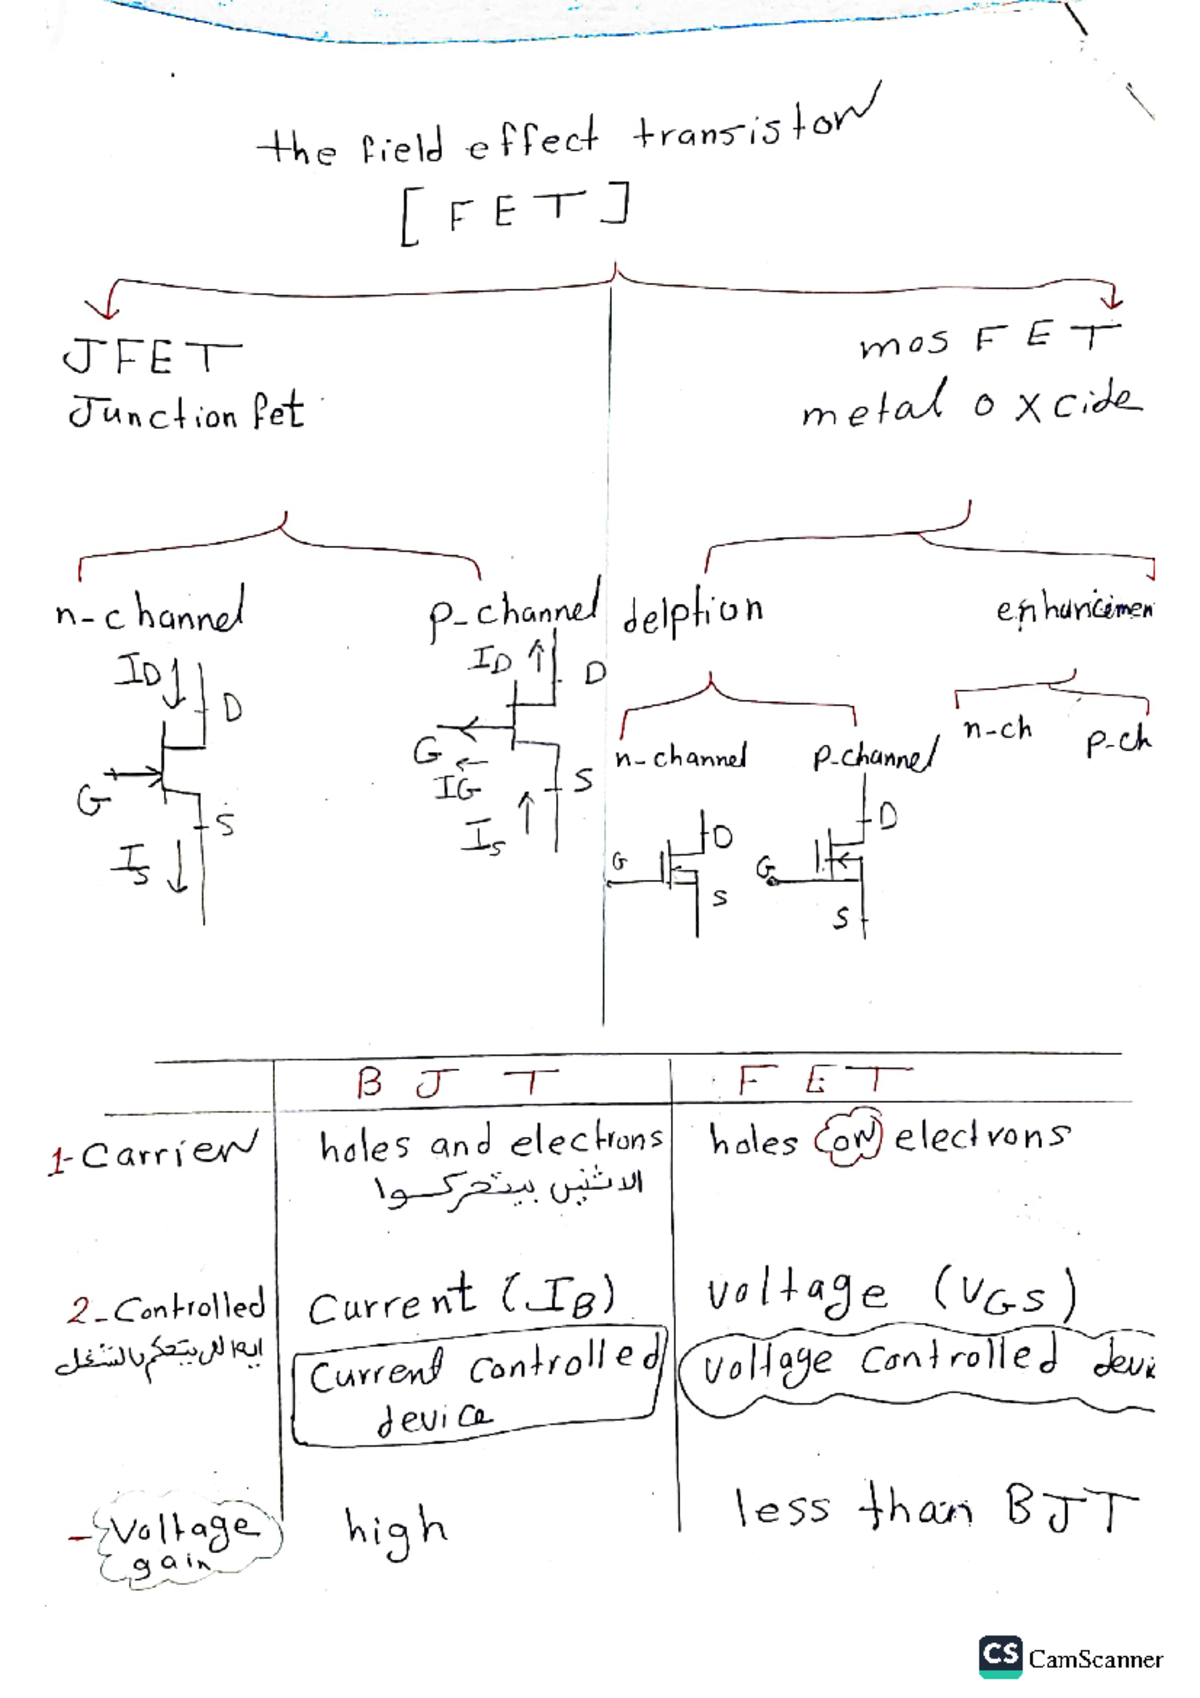 the field effect transistor
[FET]
JFET
Junction fet
mos FET
metal oxcide
n-channel
p-channel
delption
enhancimen
ID
D
G
S
IS
ID
D
G
IG
S
IS
n-channel
p-channel
n-ch
p-ch
D
G
S
D
G
S
BJT
FET
1-Carrier
holes and electrons
holes or electrons
الاثنين بيتحركوا
2-Controlled
Current (IB)
voltage (VGS)
ايه اللي بيتحكم بالشغل
Current controlled
device
voltage controlled devic
-Voltage
gain
high
less than BJT
CS CamScanner